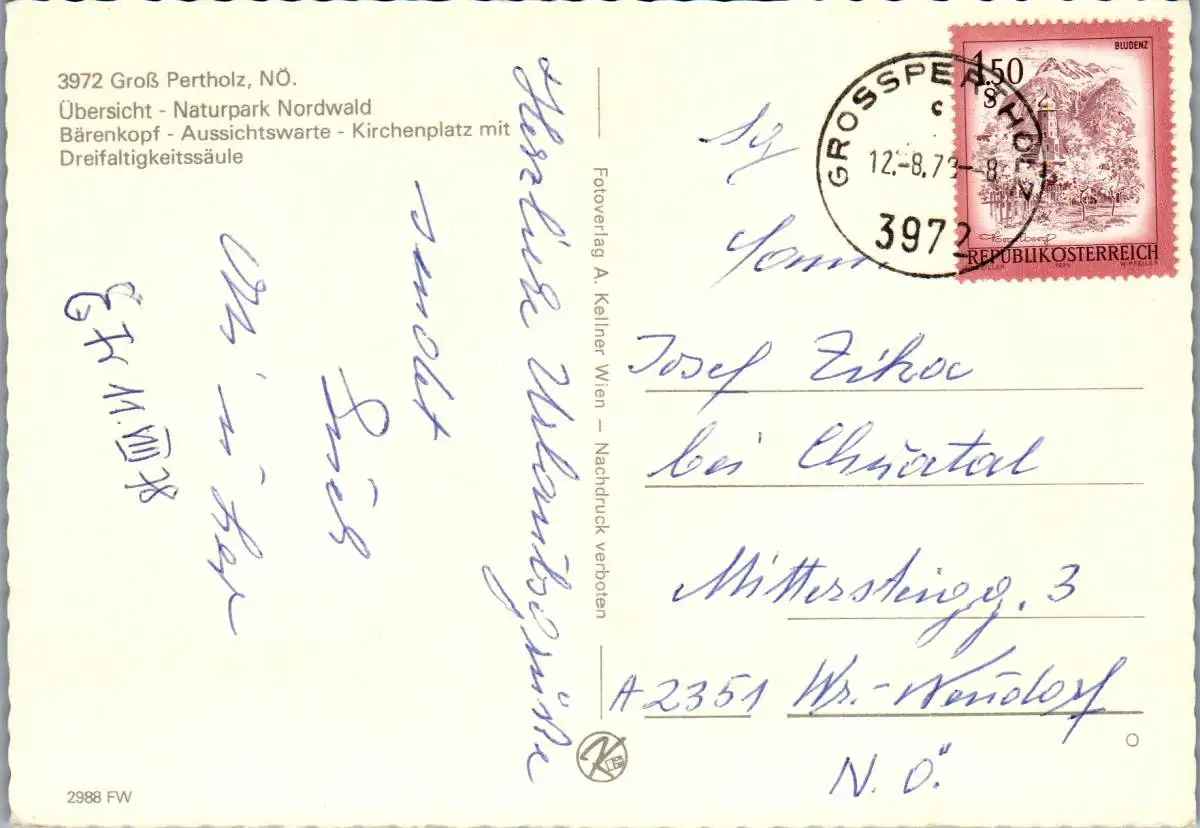 3972 Groß Pertholz, NÖ.
Übersicht - Naturpark Nordwald
Bärenkopf - Aussichtswarte - Kirchenplatz mit
Dreifaltigkeitssäule
Herzliche Urlaubsgrüße
sendet
Euch
11. VIII
Fotoverlag A. Kellner Wien — Nachdruck verboten
2988 FW
BLUDENZ
1.50
S
REPUBLIK ÖSTERREICH
GROSSPERTHOLZ
c
12.-8.7
3972
Josef Zika
bei
Mittersteigg. 3
A 2351 Wr.-Neudorf
N.Ö.